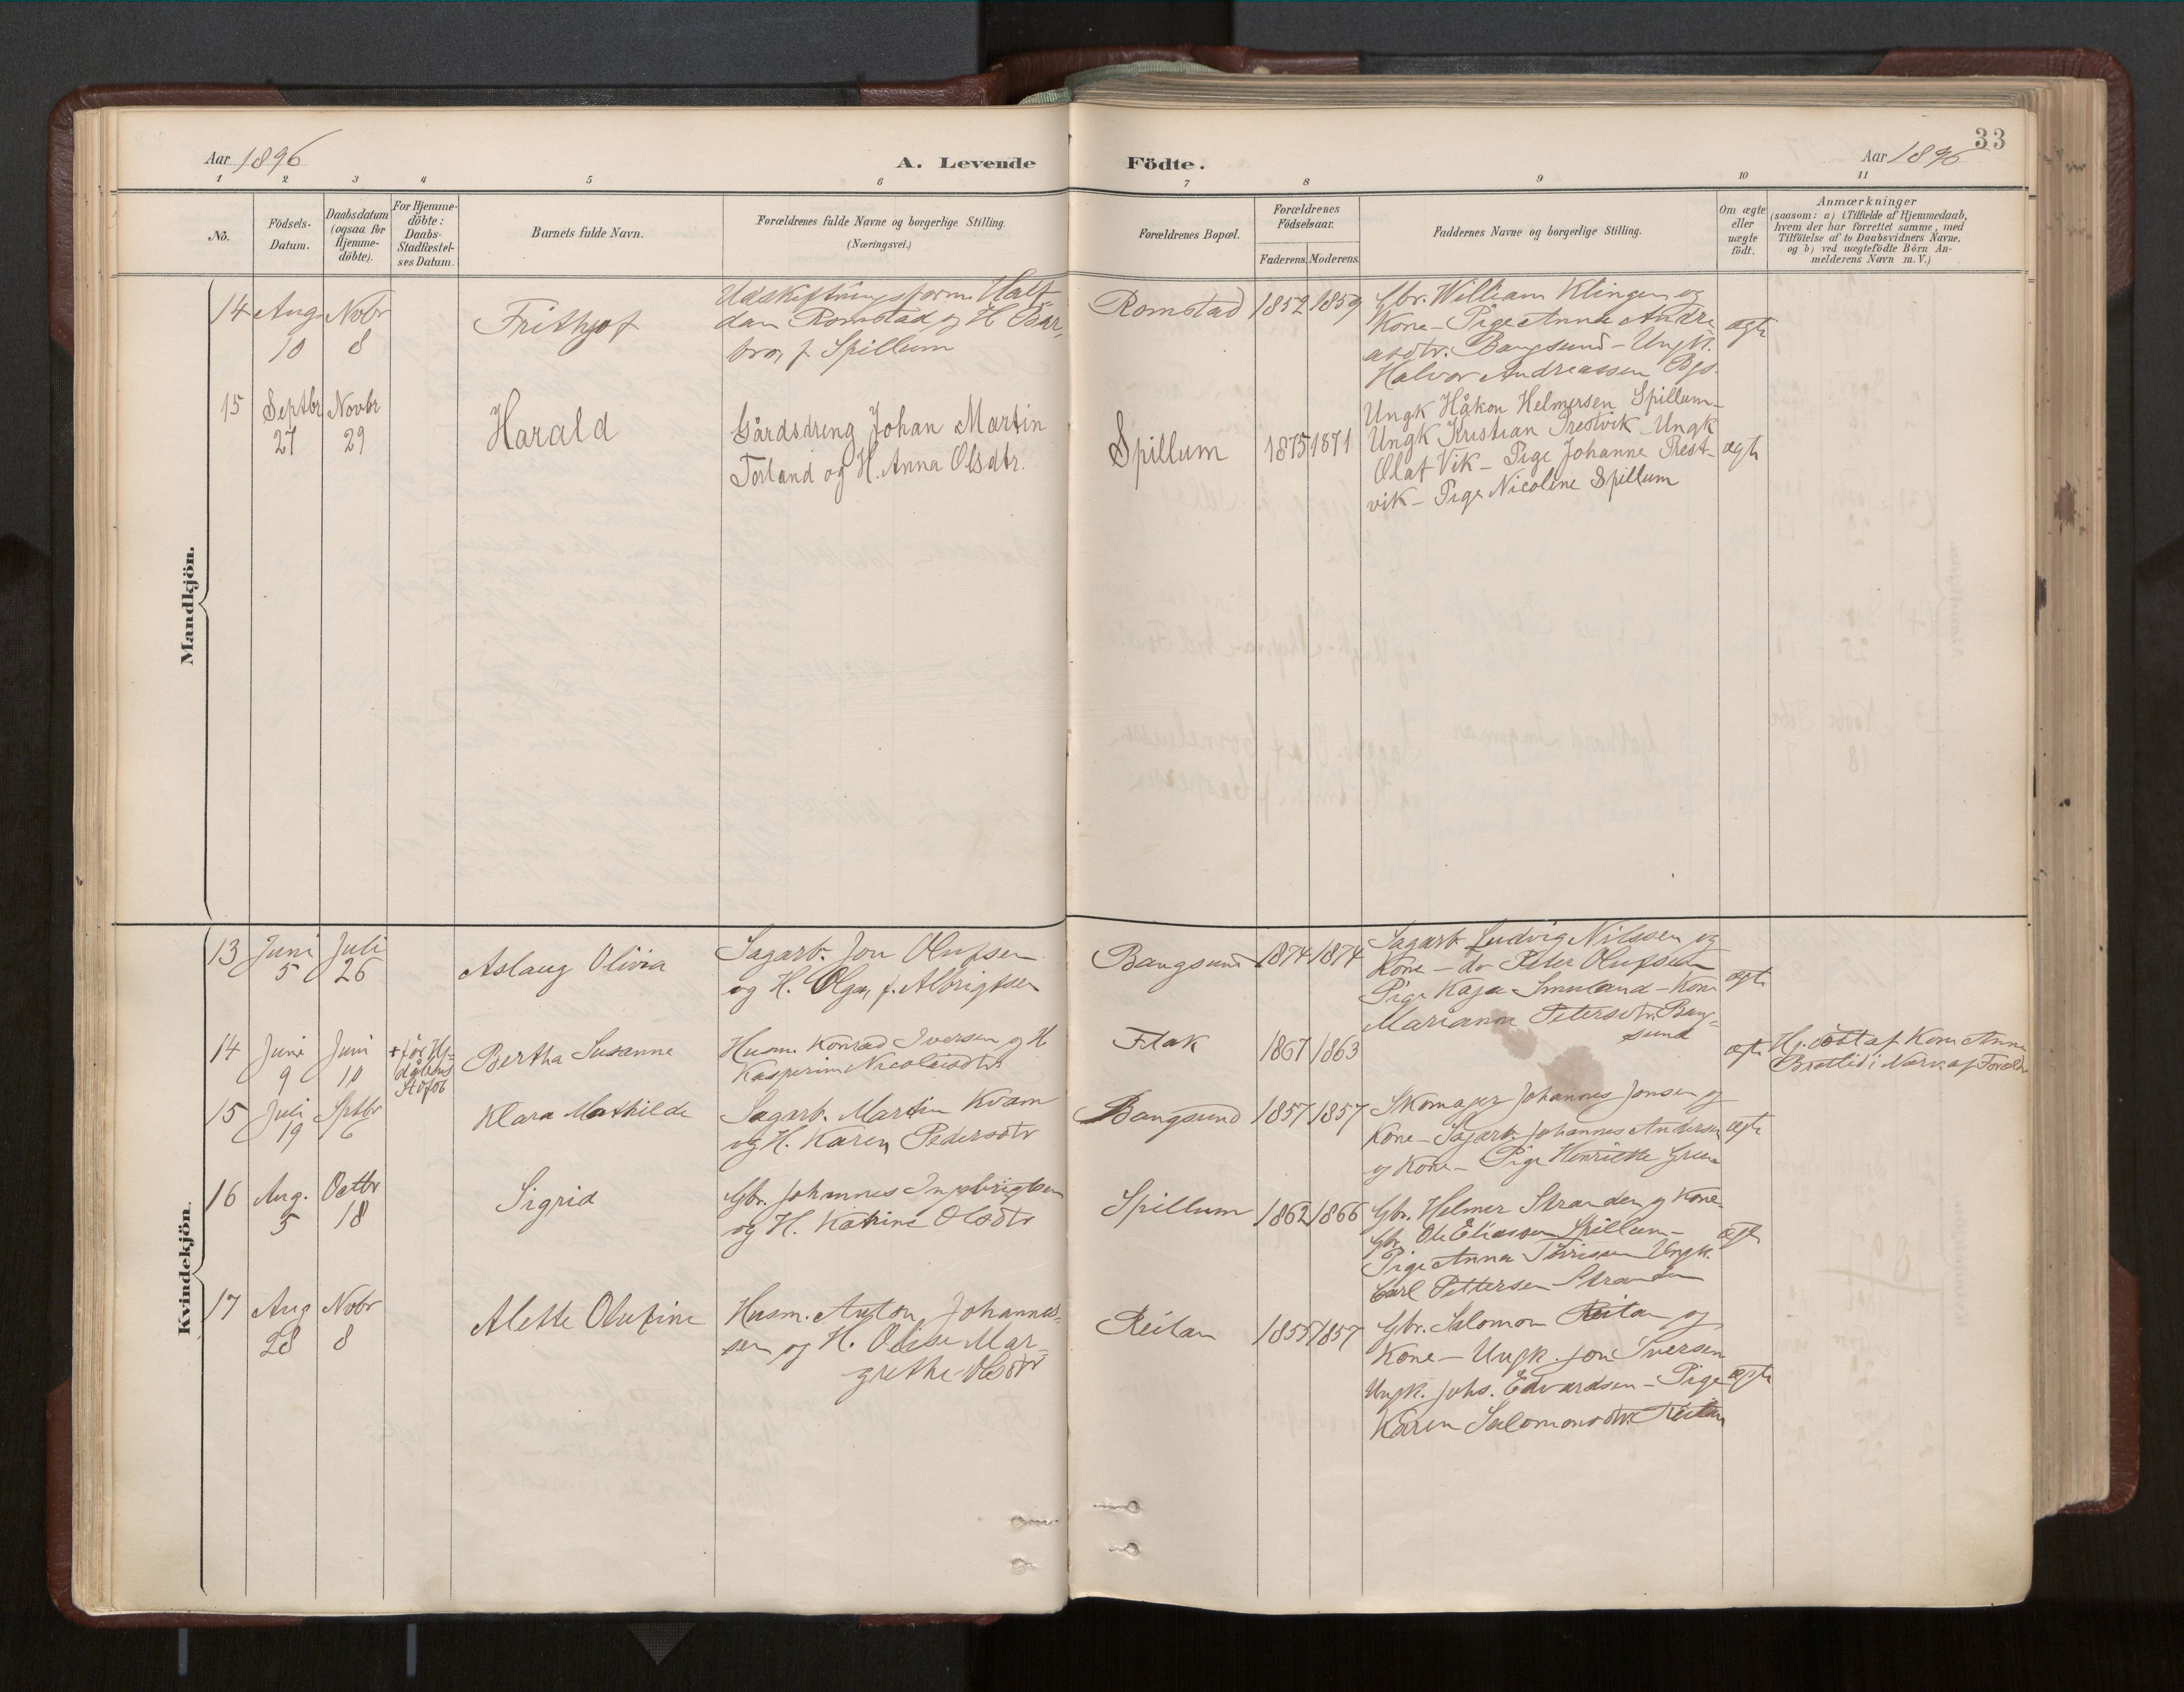 33
Aar 1896
A. Levende Födte.
Aar 1896
1 2 3 4 5 6 7 8 9 10 11
No.
Födsels-
Datum.
Daabsdatum
(ogsaa for
Hjemme-
döbte).
For Hjemme-
döbte:
Daabs-
Stadfæstel-
ses Datum.
Barnets fulde Navn.
Forældrenes fulde Navne og borgerlige Stilling.
(Næringsvei.)
Forældrenes Bopæl.
Forældrenes
Födselsaar.
Faderens. Moderens.
Faddernes Navne og borgerlige Stilling.
Om ægte
eller
uægte
födt.
Anmærkninger
(saasom: a) i Tilfælde af Hjemmedaab,
hvem der har forrettet samme, med
Tilföielse af to Daabsvidners Navne,
og b) ved uægtefödte Börn An-
melderens Navn m. V.)
Mandkjön.
14 Aug. 10
Novbr 8
Frithjof
Udskiftningsform. Half-
dan Romstad og H. Bar-
bro, f. Spillum
Romstad
1852 1859
Gbr. William Klingen og
Kone - Pige Anna Andre-
asdtr. Bangsund - Ungk.
Halvor Andreassen Bgs.
ægte
15 Septbr 27
Novbr 29
Harald
Gårdsdreng Johan Martin
Forland og H. Anna Olsdtr.
Spillum
1875 1871
Ungk Håkon Helmersen Spillum -
Ungk Kristian Prestvik Ungk
Olaf Vik - Pige Johanne Prest-
vik - Pige Nicoline Spillum
ægte
Kvindekjön.
13 Juni 5
Juli 26
Aslaug Olivia
Sagarb. Jon Olufsen
og H. Olga, f. Albrigtsen
Bangsund
1874 1874
Sagarb. Ludvig Nilssen og
Kone - do Peter Olufsen
Pige Kaja - Kone
Marianna Petersdtr. Bang-
sund
ægte
14 Juni 9
Juni 10
+ før Hj-
dåbens
Stdf.
Bertha Susanne
Husm. Konrad Iversen og H.
Kasperine Nicolaisdtr
Flak
1867 1863
ægte
Hj. döbt af Kone Anna
Brøttlid i Nærv. af Foreldr
15 Juli 19
Sptbr 6
Klara Mathilde
Sagarb. Martin Kvam
og H. Karen Pedersdtr
Bangsund
1857 1857
Skomager Johannes Jonsen og
Kone - Sagarb. Johannes Andersen
og Kone - Pige Henriette
ægte
16 Aug. 5
Octbr 18
Sigrid
Gbr. Johannes Ingebrigtsen
og H. Katrine Olsdtr
Spillum
1862 1866
Gbr. Helmer Stranden og Kone
Gbr. Ole Eliassen Spillum -
Pige Anna Ungk.
Carl Pettersen Stranden
ægte
17 Aug 28
Novbr 8
Alette Olufine
Husm. Anton Johannes-
sen og H. Elise Mar-
grethe Olsdtr
Reitan
1855 1857
Gbr. Salomon Reitan og
Kone - Ungk. Jon Iversen
Ungk. Johs. Edvardsen - Pige
Karen Salomonsdtr. Reitan
ægte